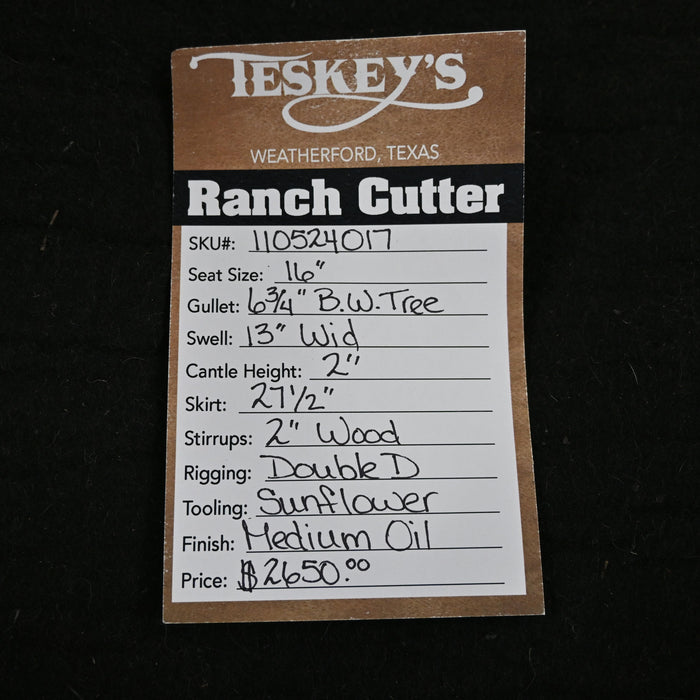 TESKEY'S
WEATHERFORD, TEXAS
Ranch Cutter
SKU#: 110524017
Seat Size: 16"
Gullet: 6 3/4" B.W. Tree
Swell: 13" Wid
Cantle Height: 2"
Skirt: 27 1/2"
Stirrups: 2" Wood
Rigging: Double D
Tooling: Sunflower
Finish: Medium Oil
Price: $2650.00